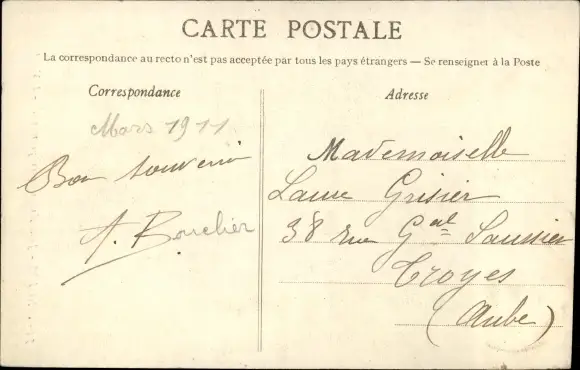 CARTE POSTALE
La correspondance au recto n'est pas acceptée par tous les pays étrangers — Se renseigner à la Poste
Correspondance
Adresse
Mars 1911
Bon souvenir
A. Bouclier
Mademoiselle
Laure Grisier
38 rue Gal Saussier
Troyes
(Aube)